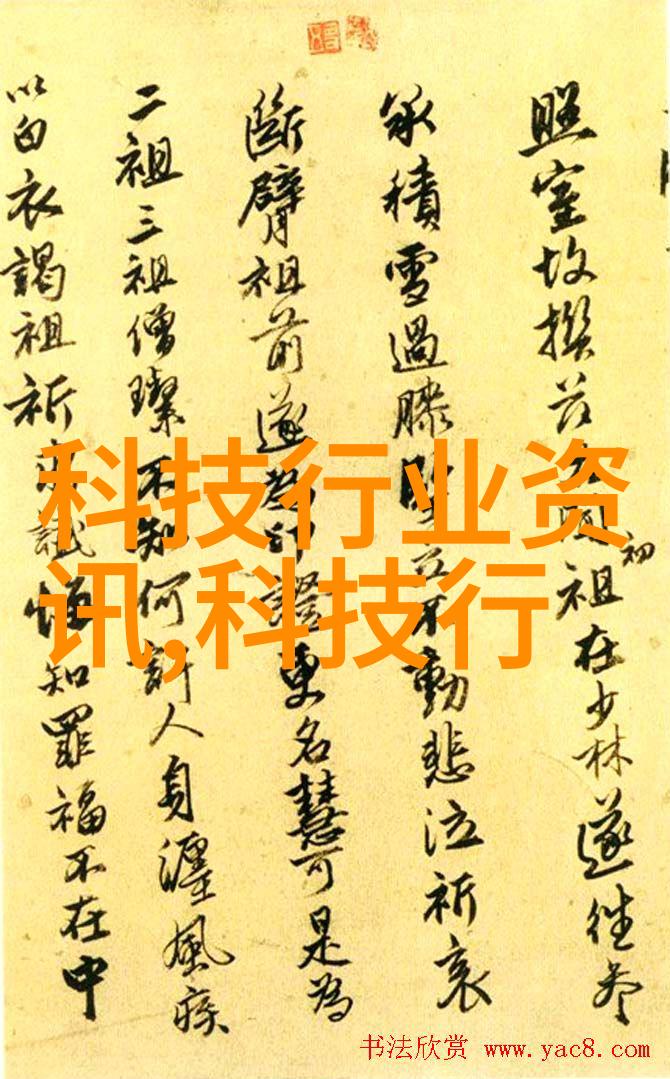 照室故撰初祖在少林遂往參
承積雪過膝立不動悲泣祈哀
斷臂祖前遂為印證更名慧可是為
二祖三祖僧璨不知何許人身纏風疾
以白衣謁祖祈懺悔知罪福不在中
科技行业资
讯,科技行
书法欣赏 www.yac8.com